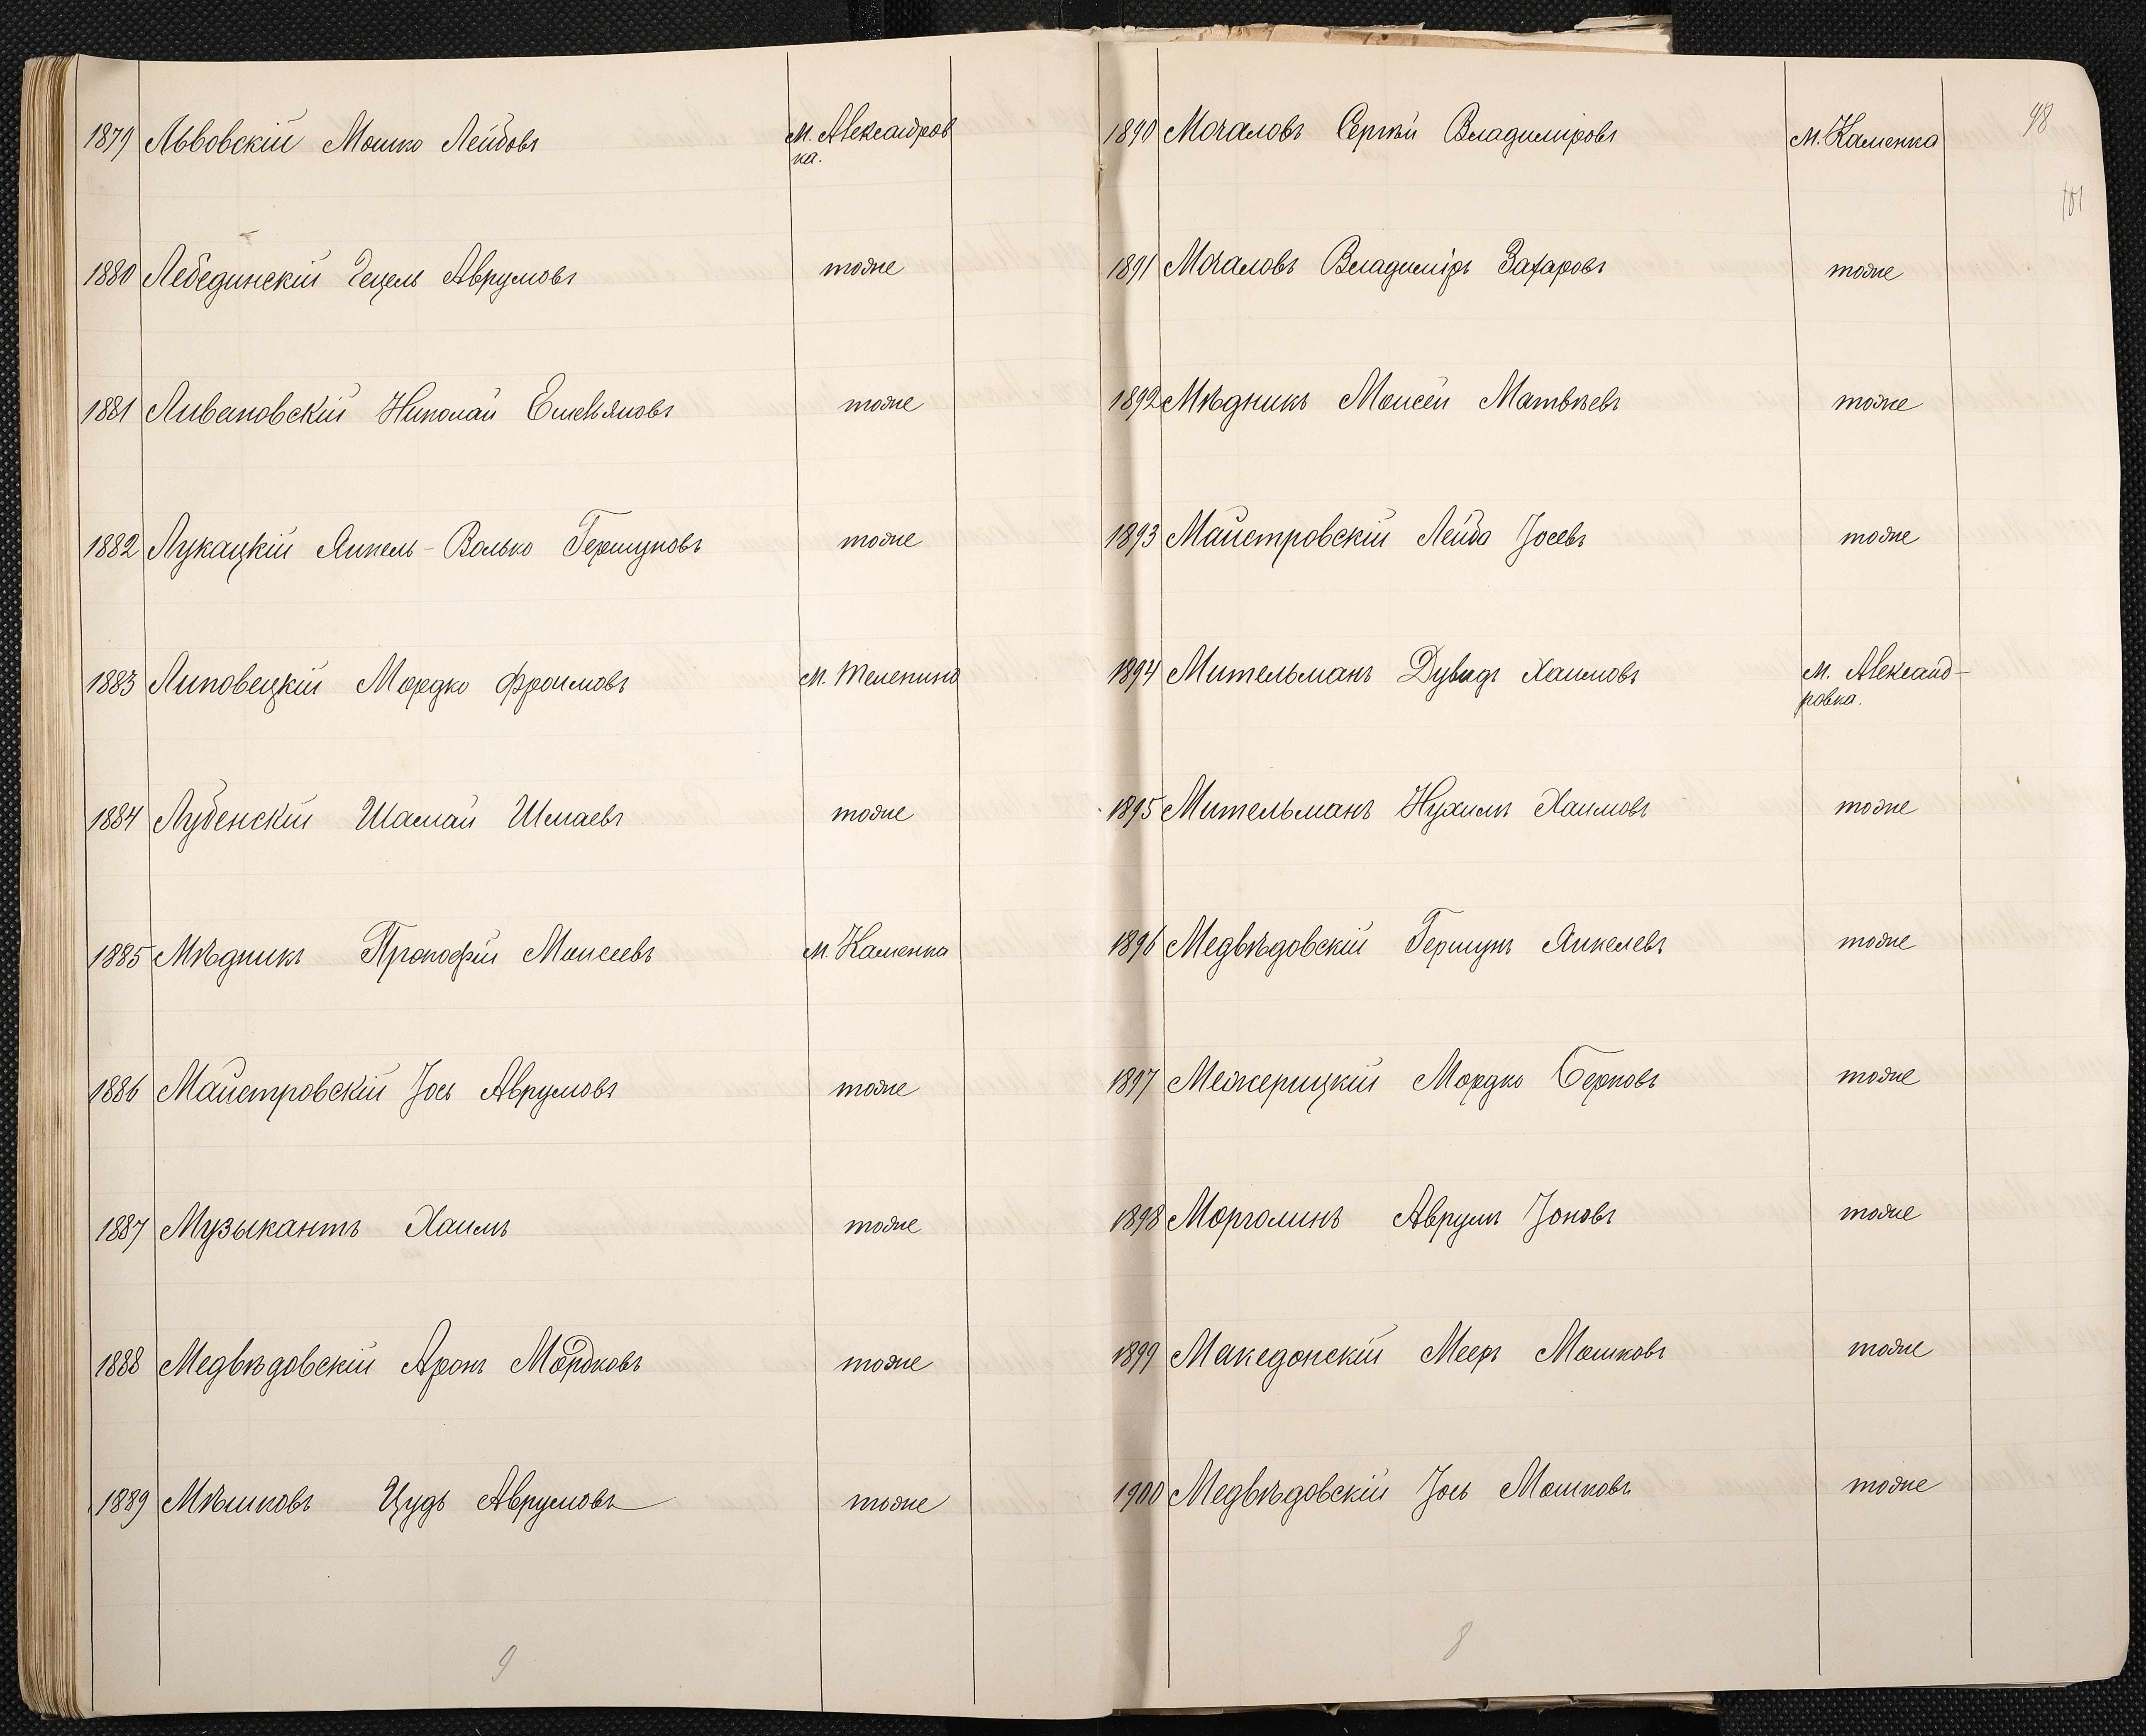 1879 Львовскій Мошко Лейбовъ м. Александров
ка.
1880 Лебединскій Гецель Аврумовъ тоже
1881 Ливановскій Николай Емельяновъ тоже
1882 Лукацкій Янкель-Волько Гершуновъ тоже
1883 Липовецкій Мордко Фроимовъ м. Телепино
1884 Лубенскій Шамай Шмаевъ тоже
1885 Мѣдникъ Прокофій Моисеевъ м. Каменка
1886 Майстровскій Іось Аврумовъ тоже
1887 Музыкантъ Хаимъ тоже
1888 Медвѣдовскій Аронъ Мордковъ тоже
1889 Мѣшковъ Цудъ Аврумовъ тоже
9
98
101
1890 Мочаловъ Сергѣй Владиміровъ м. Каменка
1891 Мочаловъ Владиміръ Захаровъ тоже
1892 Мѣдникъ Моисей Матвѣевъ тоже
1893 Майстровскій Лейба Іосевъ тоже
1894 Мительманъ Дувидъ Хаимовъ м. Александ-
ровка.
1895 Мительманъ Нухимъ Хаимовъ тоже
1896 Медвѣдовскій Гершунъ Янкелевъ тоже
1897 Межерицкій Мордко Берковъ тоже
1898 Морголинъ Аврумъ Іоновъ тоже
1899 Македонскій Мееръ Мошковъ тоже
1900 Медвѣдовскій Іось Мошковъ тоже
8